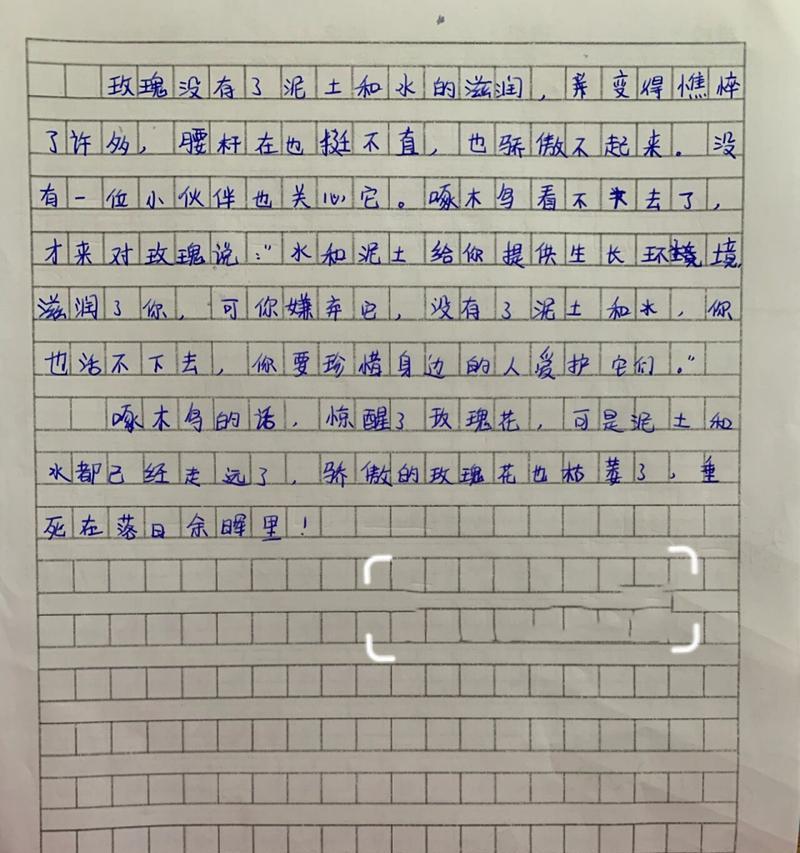 玫瑰没有了泥土和水的滋润，亲变得憔悴
了许多，腰杆在也挺不直，也骄傲不起来。没
有一位小伙伴也关心它。啄木鸟看不去了，
才来对玫瑰说：“水和泥土给你提供生长环境
滋润了你，可你嫌弃它，没有了泥土和水，你
也活不下去，你要珍惜身边的人爱护它们。”
啄木鸟的话，惊醒了玫瑰花，可是泥土和
水都已经走远了，骄傲的玫瑰花也枯萎了，垂
死在落日余晖里！